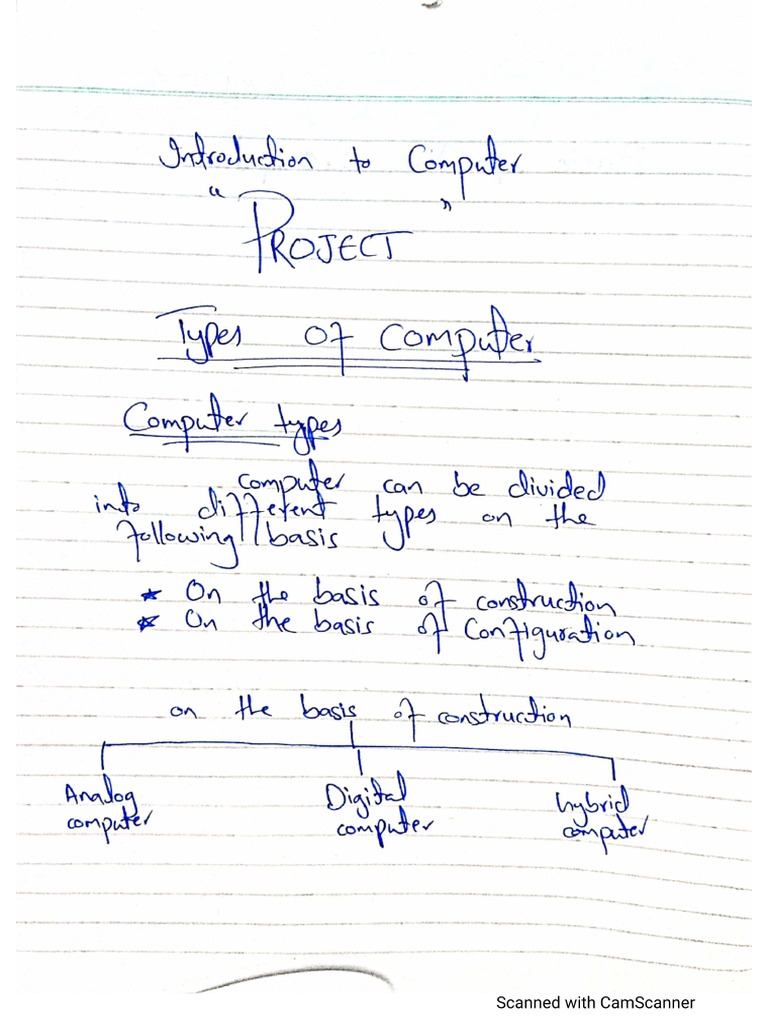 Introduction to Computer
"PROJECT"
Types of Computer
Computer types
computer can be divided
into different types on the
following basis
* On the basis of construction
* On the basis of Configuration
on the basis of construction
Analog computer
Digital computer
hybrid computer
Scanned with CamScanner